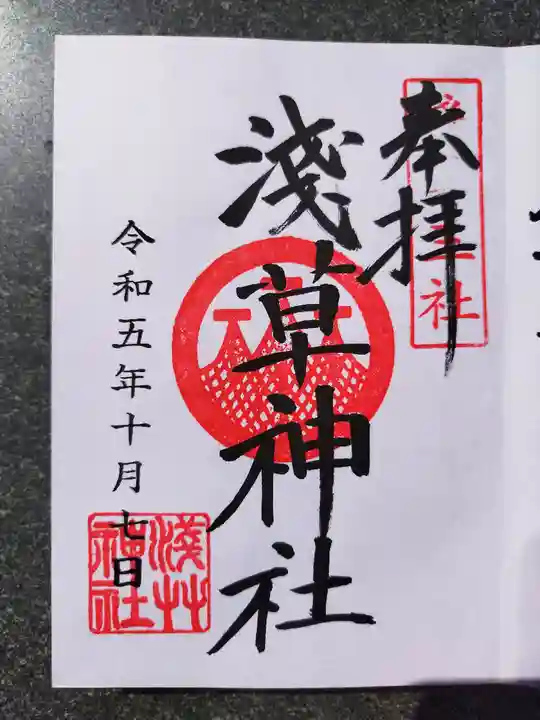 奉拝
社
淺草神社
令和五年十月七日
淺草
神社